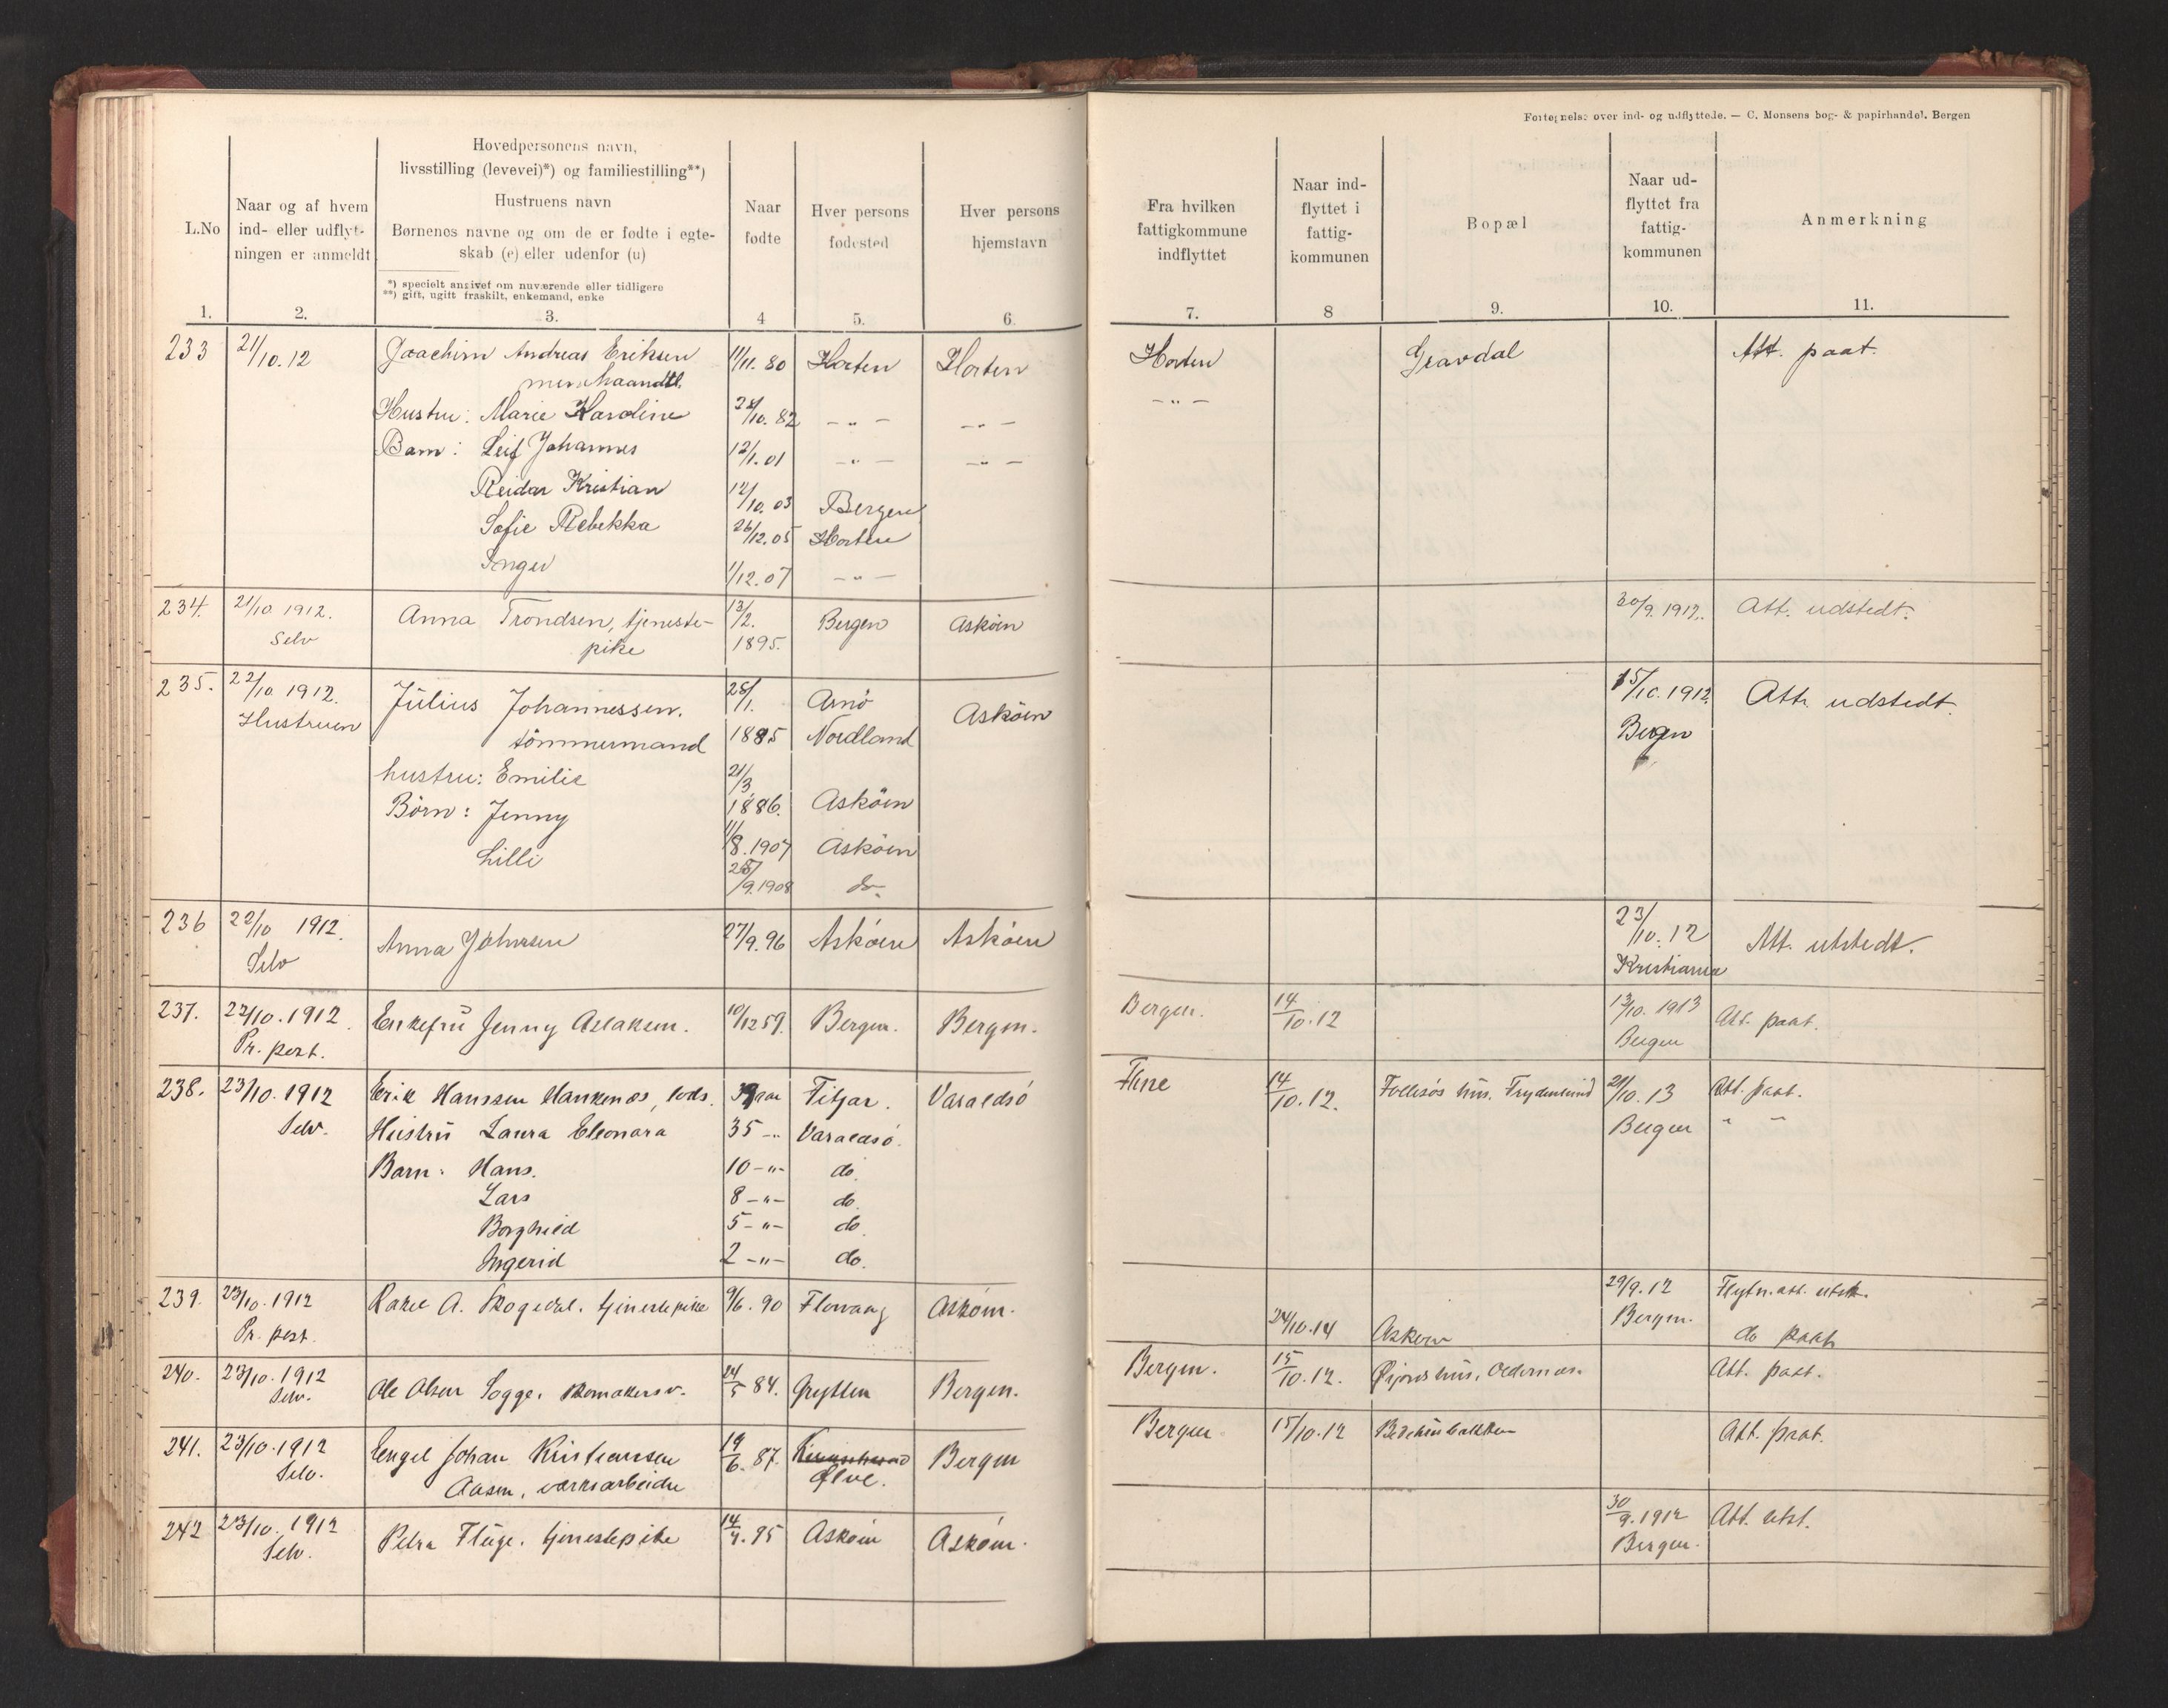 Fortegnelse over ind- og udflyttede. — C. Monsens bog- & papirhandel. Bergen
L.No
Naar og af hvem
ind- eller udflyt-
ningen er anmeldt
Hovedpersonens navn,
livsstilling (levevei)*) og familiestilling**)
Hustruens navn
Børnenes navne og om de er fødte i egte-
skab (e) eller udenfor (u)
*) specielt angivet om nuværende eller tidligere
**) gift, ugift fraskilt, enkemand, enke
Naar
fødte
Hver persons
fødested
Hver persons
hjemstavn
Fra hvilken
fattigkommune
indflyttet
Naar ind-
flyttet i
fattig-
kommunen
Bopæl
Naar ud-
flyttet fra
fattig-
kommunen
Anmerkning
1. 2. 3. 4 5. 6. 7. 8 9. 10. 11.
233 21/10.12 Joachim Andreas Eriksen 11/11.80 Horten Horten Horten Gravdal Att. paat.
Hustru: Marie Karoline /10.82 – " – – " – – " –
Barn: Leif Johannes 12/1.01 – " – – " –
Reidar Kristian 12/10.03 Bergen
Sofie Rebekka 26/12.05 Horten
Inger 1/12.07 – " –
234. 21/10 1912. Anna Trondsen, tjeneste- 13/2. Bergen Askøen 30/9.1912. Att. udstedt.
Selv pike 1895.
235. 22/10 1912. Julius Johannessen. 25/1. Arnö Askøen 15/10.1912 Att. udstedt.
Hustruen tömmermand 1885 Nordland Bergen
hustru: Emilie 21/3
Börn: Jenny 1886. Askøen
Lilli 11/8.1907 Askøen
/9.1908 do.
236 22/10 1912. Anna Johnsen 27/9.96 Askøen Askøen 23/10.12 Att. utstedt.
Selv Kristiania
237. 22/10.1912. Enkefru Jenny Aslaksen. 10/12 59. Bergen. Bergen. Bergen. 14/10.12 13/10.1913 Att. paat.
Pr. post. Bergen
238. 23/10.1912 Erik Hanssen Hankenæs, lods. 39 aar Fitjar. Varaldsö 14/10.12. Follesøs hus. Frydenlund 21/10.13 Att. paat.
Selv. Hustru Laura Eleonora 35 – " Varaldsö. Bergen " –
Barn: Hans. 10 – " – do.
Lars 8 – " – do.
Borghild 5 – " – do
Ingerid 2 – " – do.
239. 23/10.1912 A. Skogedal. tjenestepike 9/6.90 Florvaag Askøen. 29/9.12 Flytn.att. utst.
Pr. post. 24/10.14 Askøen Bergen. do paat.
240. 23/10.1912 Ole Olsen Sogge. skomakersv. 24/5 84. Grytten Bergen. Bergen. 15/10.12. hus. Att. paat.
Selv.
241. 23/10.1912 Engel Johan Kristiansen 19/6.87. Bergen Bergen 15/10.12 Att. paat.
Selv. Aasen, verksarbeider Ølve.
242 23/10.1912 Petra Fluge. tjenestepike 14/4.95 Askøen Askøen. 30/9.1912 Att. utst.
Selv. Bergen.